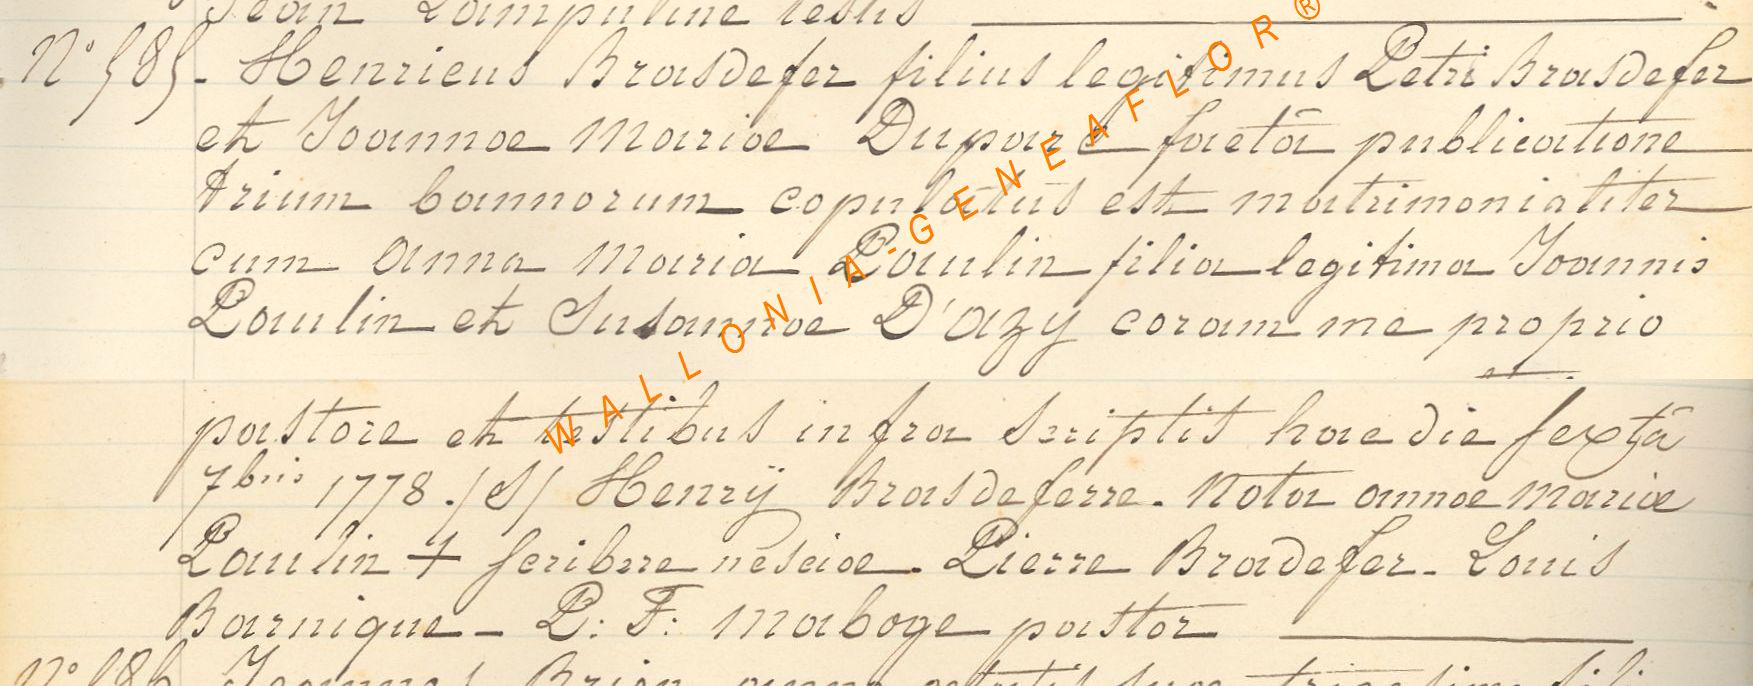 Jean Lampuline testis
N° 585. Henricus Brasdefer filius legitimus Petri Brasdefer
et Joannae Mariae Duparc factâ publicatione
trium bannorum copulatus est matrimonialiter
cum Anna Maria Paulin filia legitima Joannis
Paulin et Susannae D'azy coram me proprio
pastore et testibus infra scriptis hac die sextâ
7bris 1778. /S/ Henrÿ Brasdeferre. Nota annae mariae
Paulin + scribere nesciae. Pierre Bradefer. Louis
Barnique - P: F: Maboge pastor
N° 586 Joannes Brion anno aetatis suae
WALLONIA-GENEAFLOR®